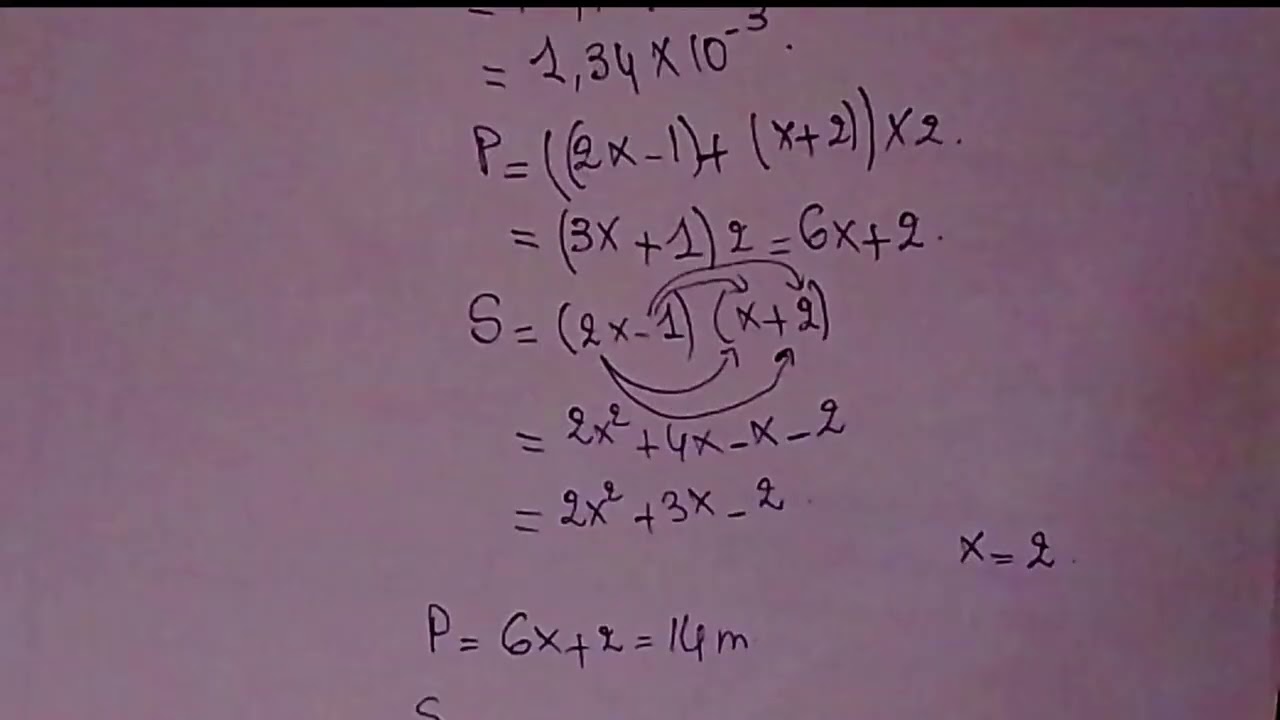 = 1,34 × 10⁻³.
P = ((2x - 1) + (x + 2)) × 2.
= (3x + 1) 2 = 6x + 2.
S = (2x - 1) (x + 2)
= 2x² + 4x - x - 2
= 2x² + 3x - 2
x = 2.
P = 6x + 2 = 14 m
S